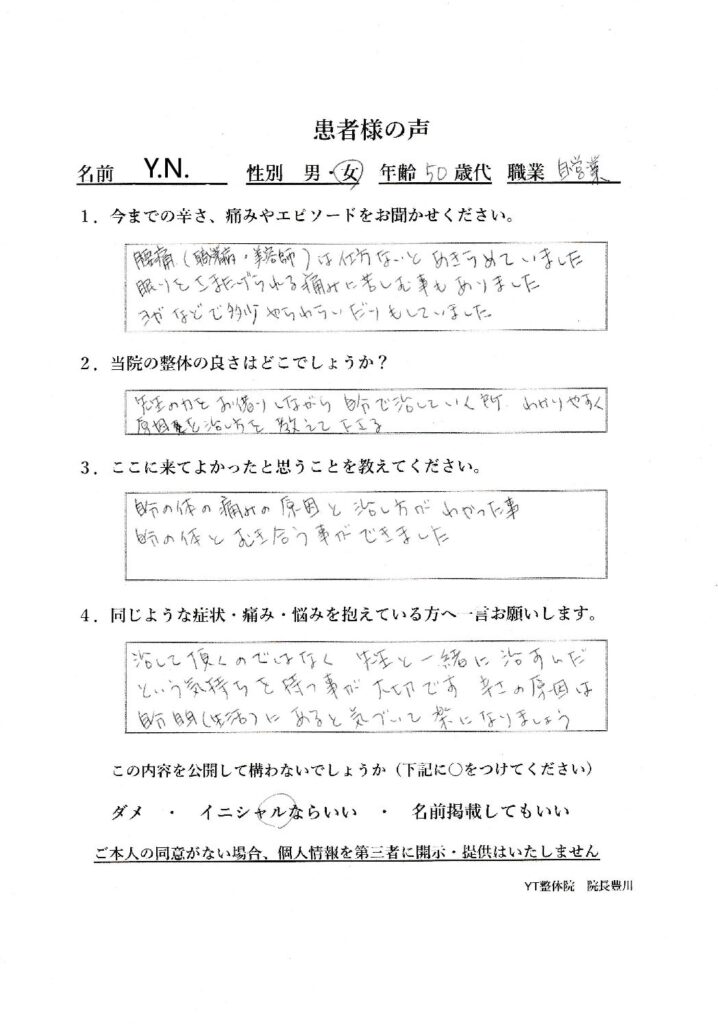 患者様の声
名前 Y.N. 性別 男・女 年齢 50 歳代 職業 自営業
1．今までの辛さ、痛みやエピソードをお聞かせください。
腰痛(職業病・美容師)は仕方ないと あきらめていました
眠りをさまたげられる痛みに苦しむ事もありました
ヨガなどで多少やわらいだりもしていました
2．当院の整体の良さはどこでしょうか？
先生の力を お借りしながら 自分で治していく所 わかりやすく
原因と治し方を 教えて下さる
3．ここに来てよかったと思うことを教えてください。
自分の体の痛みの原因と治し方がわかった事
自分の体とむき合う事ができました
4．同じような症状・痛み・悩みを抱えている方へ一言お願いします。
治して頂くのではなく 先生と一緒に治すんだ
という気持ちを持つ事が大切です 辛さの原因は
自分(生活)にあると気づいて楽になりましょう
この内容を公開して構わないでしょうか（下記に〇をつけてください）
ダメ ・ イニシャルならいい ・ 名前掲載してもいい
ご本人の同意がない場合、個人情報を第三者に開示・提供はいたしません
YT整体院 院長豊川